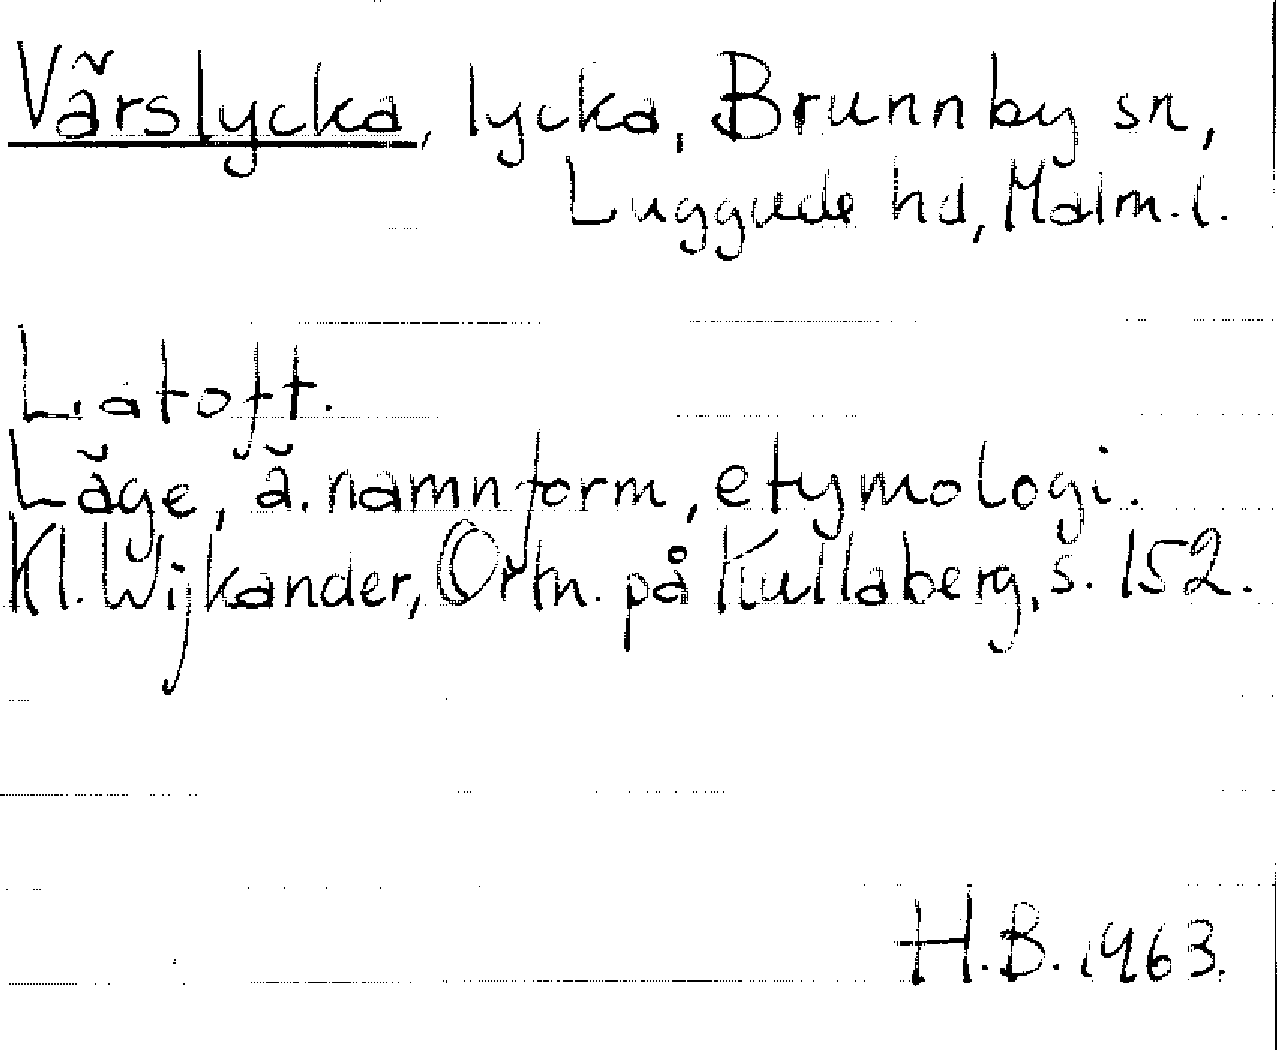 Vårslycka, lycka, Brunnby sn,
Luggude hd, Malm. l.
L. atoft.
Läge, ä. namnform, etymologi.
Kl. Wijkander, Ortn. på Kullaberg, s. 152.
H.B. 1963.